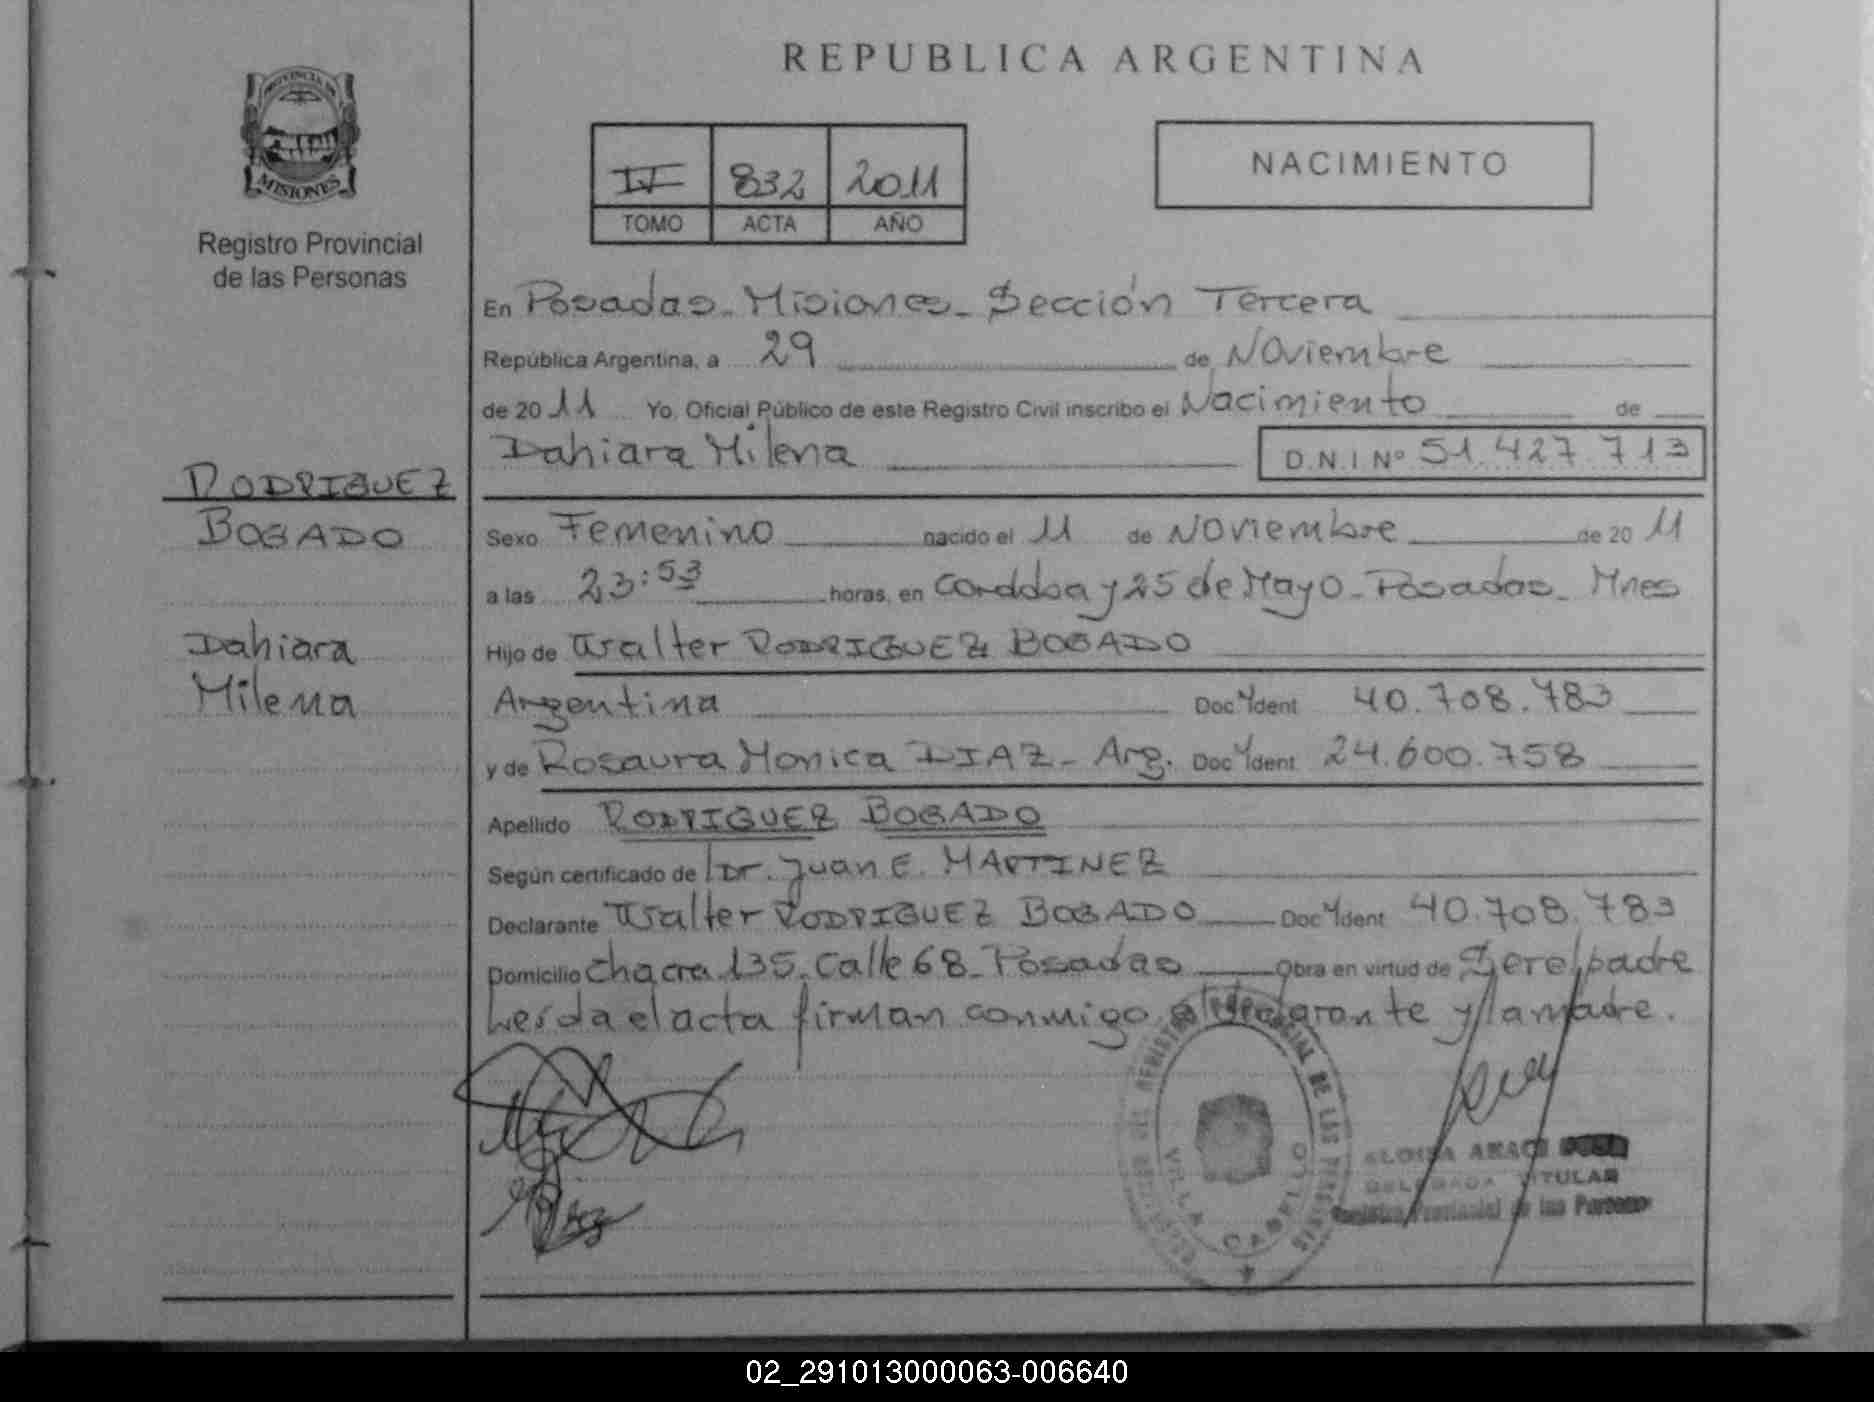 REPUBLICA ARGENTINA
PROVINCIA DE
MISIONES
Registro Provincial
de las Personas
IV 832 2011
TOMO ACTA AÑO
NACIMIENTO
En Posadas - Misiones - Sección Tercera
República Argentina, a 29 de Noviembre
de 2011 Yo, Oficial Público de este Registro Civil inscribo el Nacimiento de
Dahiara Milena D.N.I Nº 51.427.713
RODRIGUEZ
BOGADO
Dahiara
Milena
Sexo Femenino nacido el 11 de Noviembre de 2011
a las 23:53 horas, en Cordoba y 25 de Mayo - Posadas - Mnes
Hijo de Walter RODRIGUEZ BOGADO
Argentina Doc Ident 40.708.783
y de Rosaura Monica DIAZ - Arg. Doc Ident 24.600.758
Apellido RODRIGUEZ BOGADO
Según certificado de Dr. Juan E. MARTINEZ
Declarante Walter RODRIGUEZ BOGADO Doc Ident 40.708.783
Domicilio Chacra 135. Calle 68 - Posadas Obra en virtud de Ser el padre
Leída el acta firman conmigo el declarante y la madre.
VILLA CABELLO
DELEGADA TITULAR
Registro Provincial de las Personas
02_291013000063-006640